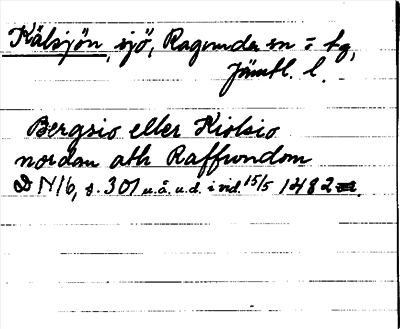 Kälsjön, sjö, Ragunda sn o tg,
Jämtl. l.
Bergsio eller Kiolsio
nordan ath Raffwndom
D N16, s. 301 u.å. u.d. i vid. 15/5 1482